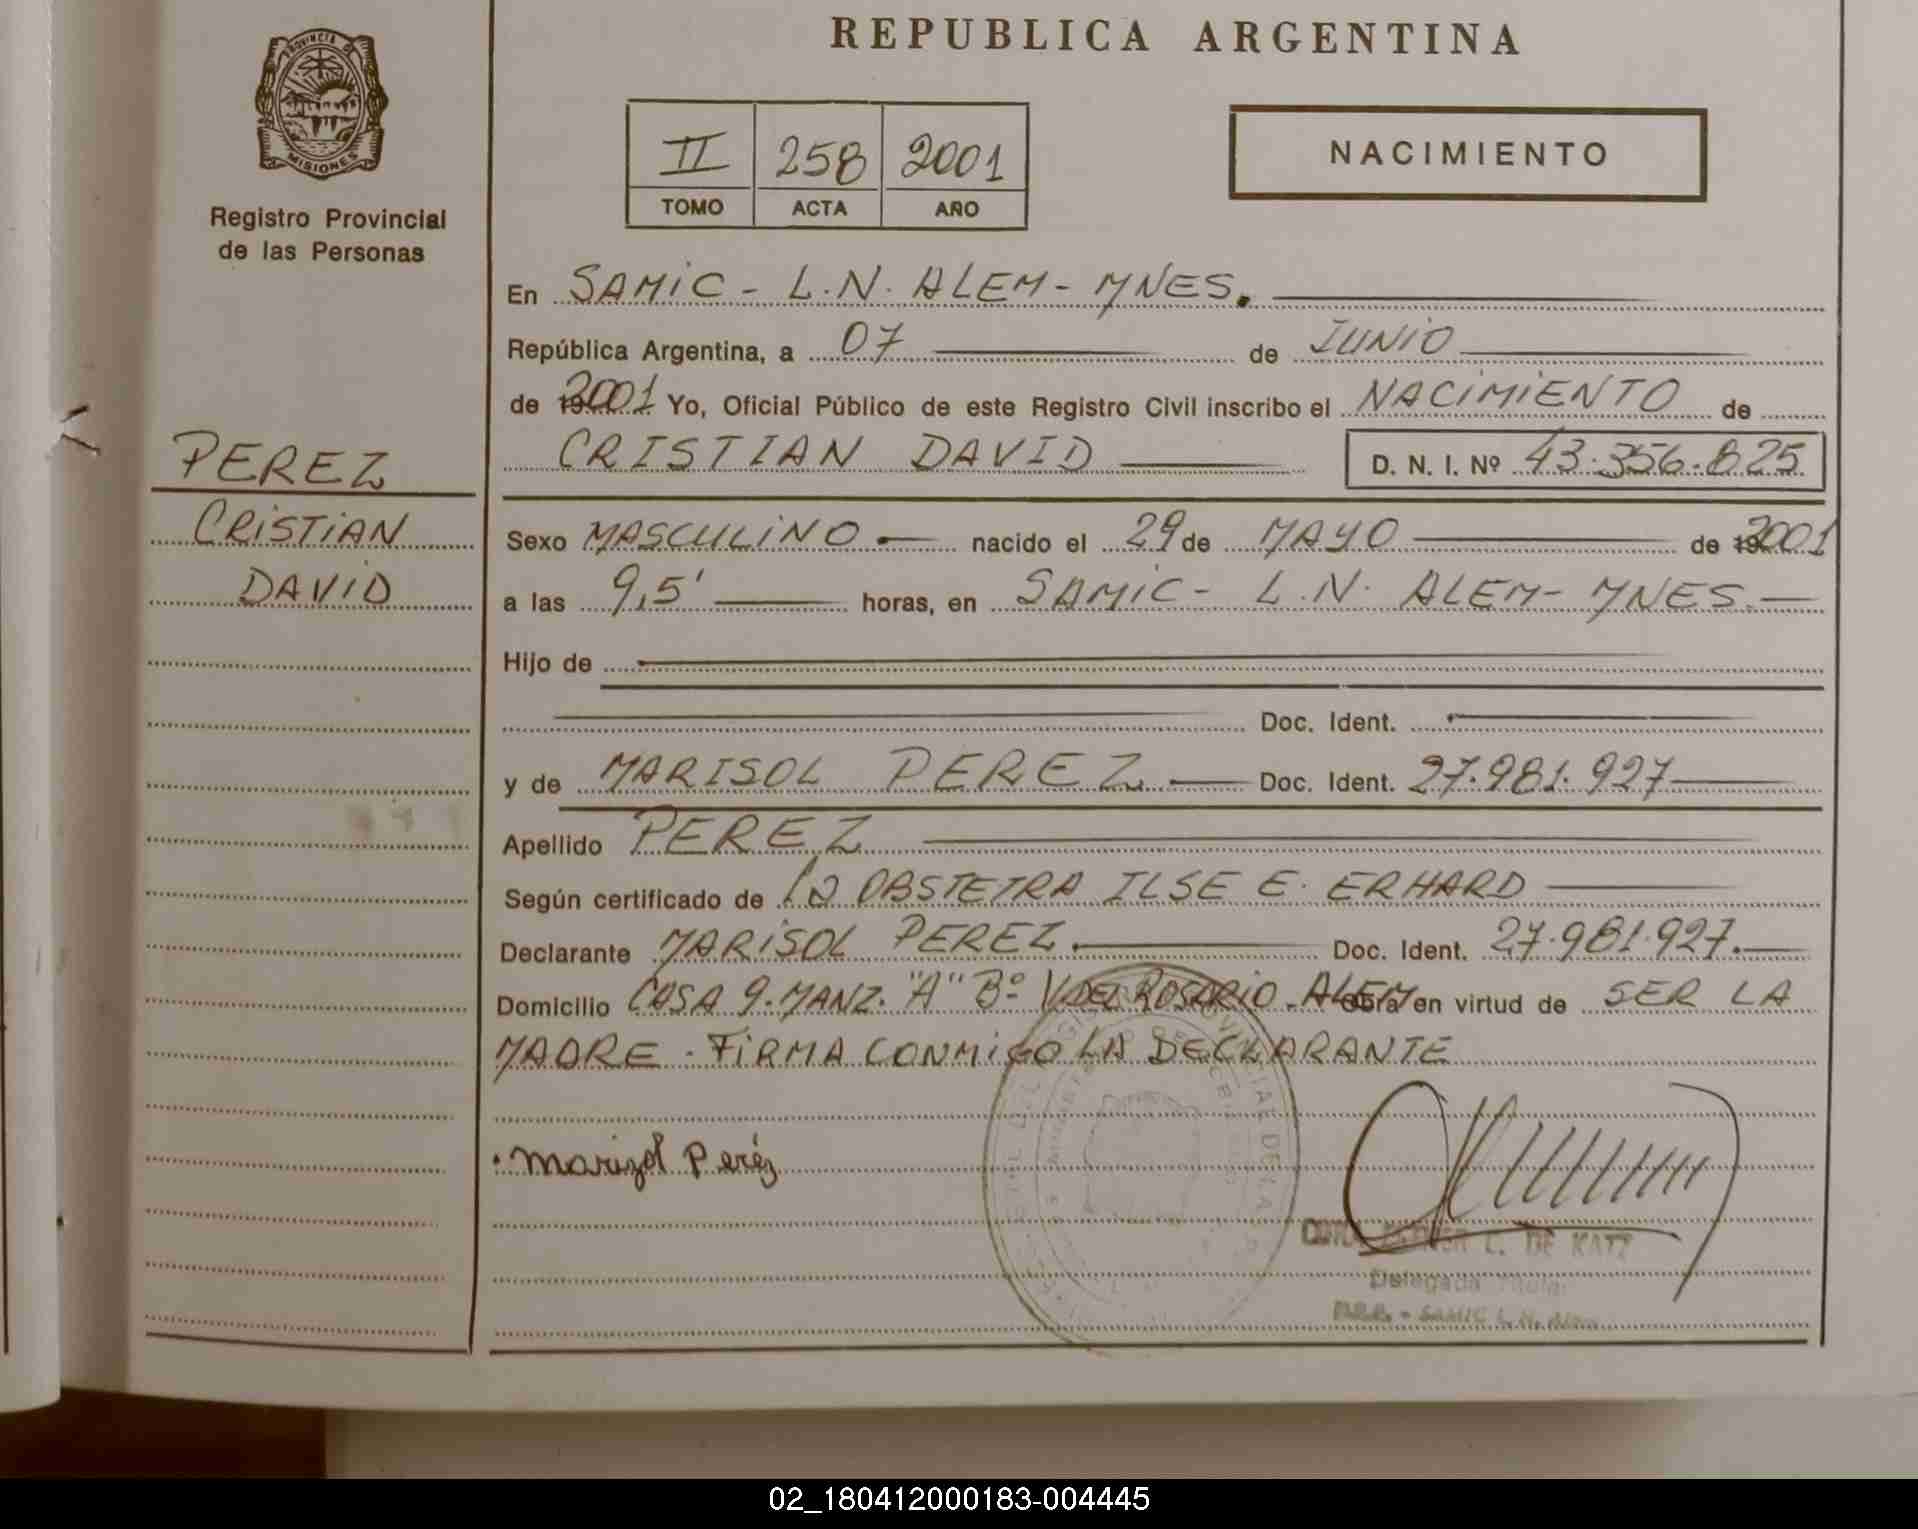 REPUBLICA ARGENTINA
PROVINCIA DE
MISIONES
Registro Provincial
de las Personas
II 258 2001
TOMO ACTA AÑO
NACIMIENTO
PEREZ
CRISTIAN
DAVID
En SAMIC - L.N. ALEM - MNES.
República Argentina, a 07 de JUNIO
de 2001 Yo, Oficial Público de este Registro Civil inscribo el NACIMIENTO de
CRISTIAN DAVID D. N. I. Nº 43.356.825
Sexo MASCULINO nacido el 29 de MAYO de 2001
a las 9,5' horas, en SAMIC - L.N. ALEM - MNES.
Hijo de
Doc. Ident.
y de MARISOL PEREZ Doc. Ident. 27.981.927
Apellido PEREZ
Según certificado de La OBSTETRA ILSE E. ERHARD
Declarante MARISOL PEREZ. Doc. Ident. 27.981.927.
Domicilio CASA 9. MANZ. "A" Bº V. DEL ROSARIO - ALEM Obra en virtud de SER LA
MADRE - FIRMA CONMIGO LA DECLARANTE
Marizol Peréz
L. DE KATZ
Delegada Titular
SAMIC L. N. Alem
02_180412000183-004445